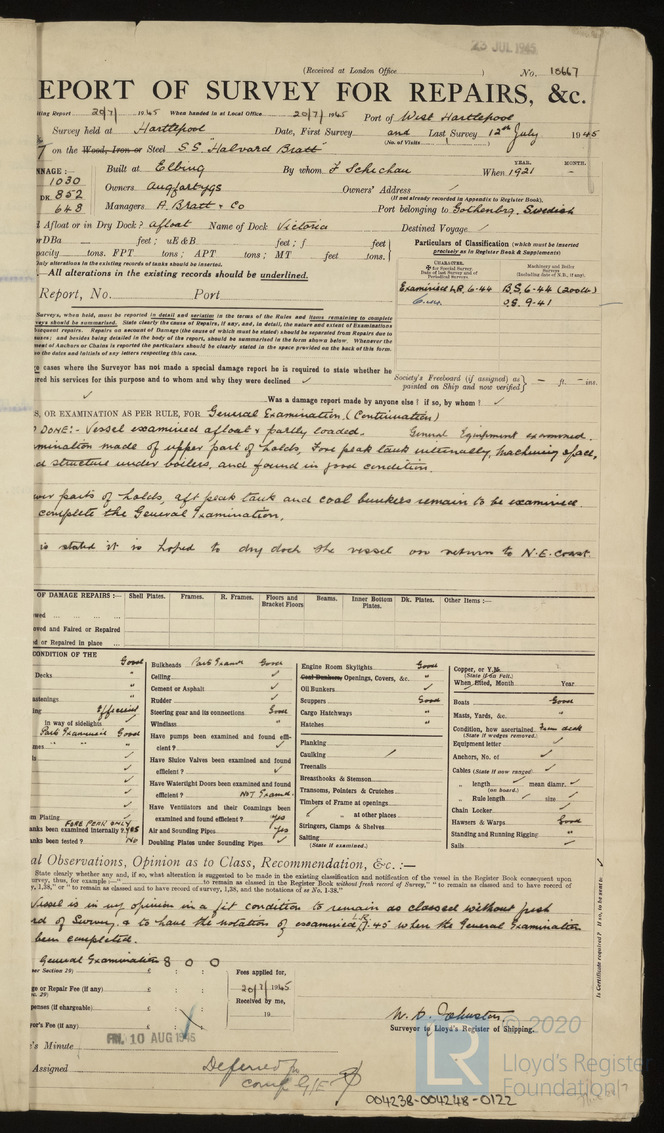 23 JUL 1945
(Received at London Office ) No. 10667
EPORT OF SURVEY FOR REPAIRS, &c.
ting Report 20/7/ 1945 When handed in at Local Office 20/7/ 1945 Port of West Hartlepool
Survey held at Hartlepool Date, First Survey and Last Survey 12th July 1945
(No. of Visits )
on the Wood, Iron or Steel S.S. "Halvard Bratt"
NNAGE:— Built at Elbing By whom F Schichau When 1921
YEAR. MONTH.
1030
DK. 852 Owners Angfartygs Owners' Address
(If not already recorded in Appendix to Register Book).
648 Managers A. Bratt & Co Port belonging to Gothenbrg, Swedish
d Afloat or in Dry Dock? afloat Name of Dock Victoria Destined Voyage
or DBa feet; uE&B feet; f feet
pacity tons. FPT tons; APT tons; MT feet tons.
ly alterations in the existing records of tanks should be inserted.
.—All alterations in the existing records should be underlined.
Particulars of Classification (which must be inserted
precisely as in Register Book & Supplements)
CHARACTER.
✠ for Special Survey.
Date of Last Survey and of
Periodical Surveys
Machinery and Boiler
Surveys
(Including date of N.B., if any).
Examined LR. 6-44 B.S. 6-44 (200lb)
O.G. 9-41
Report, No. Port
Surveys, when held, must be reported in detail and seriatim in the terms of the Rules and items remaining to complete
veys should be summarised. State clearly the cause of Repairs, if any, and, in detail, the nature and extent of Examinations
bsequent repairs. Repairs on account of Damage (the cause of which must be stated) should be separated from Repairs due to
auses; and besides being detailed in the body of the report, should be summarised in the form shown below. Whenever the
ment of Anchors or Chains is reported the particulars should be clearly stated in the space provided on the back of this form.
on the dates and initials of any letters respecting this case.
e cases where the Surveyor has not made a special damage report he is required to state whether he
red his services for this purpose and to whom and why they were declined ✓
Society's Freeboard (if assigned) as
painted on Ship and now verified — ft. — ins.
✓ Was a damage report made by anyone else? if so, by whom? ✓
S, OR EXAMINATION AS PER RULE, FOR General Examination. (Continuation)
DONE:- Vessel examined afloat & partly loaded. General Equipment examined.
mination made of upper part of holds, Fore peak tank internally, Machinery space,
d structure under boilers, and found in good condition.
wer parts of holds, aft peak tank and coal bunkers remain to be examined
complete the General Examination.
is stated it is hoped to dry dock the vessel on return to N.E. Coast.
OF DAMAGE REPAIRS:— Shell Plates. Frames. R. Frames. Floors and Bracket Floors Beams. Inner Bottom Plates. Dk. Plates. Other Items:—
wed
oved and Faired or Repaired
ed or Repaired in place
CONDITION OF THE
Good
Decks "
astenings "
ing Efficient
in way of sidelights "
Part Examined Good
mes " "
m Plating
FORE PEAK ONLY
anks been examined internally? YES
anks been tested? No
Bulkheads Part Exam'd Good
Ceiling ✓
Cement or Asphalt ✓
Rudder ✓
Steering gear and its connections Good
Windlass "
Have pumps been examined and found effi-
cient? ✓
Have Sluice Valves been examined and found
efficient? ✓
Have Watertight Doors been examined and found
efficient? NOT Exam'd.
Have Ventilators and their Coamings been
examined and found efficient? Yes
Air and Sounding Pipes Yes
Doubling Plates under Sounding Pipes ✓
Engine Room Skylights Good
Coal Bunkers, Openings, Covers, &c. "
Oil Bunkers ✓
Scuppers Good
Cargo Hatchways "
Hatches "
Planking
Caulking ✓
Treenails
Breasthooks & Stemson
Transoms, Pointers & Crutches
Timbers of Frame at openings
" " at other places
Stringers, Clamps & Shelves
Salting
(State if examined.)
Copper, or Y.M.
(State if on Felt.)
When fitted, Month Year
Boats Good
Masts, Yards, &c. "
Condition, how ascertained From deck
(State if wedges removed.)
Equipment letter ✓
Anchors, No. of ✓
Cables (State if now ranged) ✓
" length ✓ mean diamr. ✓
(on board.)
" Rule length ✓ size ✓
Chain Locker ✓
Hawsers & Warps Good
Standing and Running Rigging "
Sails ✓
al Observations, Opinion as to Class, Recommendation, &c.:—
State clearly whether any and, if so, what alteration is suggested to be made in the existing classification and notification of the vessel in the Register Book consequent upon
urvey, thus, for example:—" to remain as classed in the Register Book without fresh record of Survey," " to remain as classed and to have record of
y, 1,38," or " to remain as classed and to have record of survey, 1,38, and the notations of ss No. 1-38."
Vessel is in my opinion in a fit condition to remain as classed without fresh
rd of Survey, & to have the notation of examined L.R. 7.45 when the General Examination
been completed.
General Examination £ 8 0 0
er Section 29)
ge or Repair Fee (if any) £ : :
penses (if chargeable) £ : :
yor's Fee (if any) £ : :
Fees applied for,
20/7/ 1945
Received by me,
19
W. D. Johnston
Surveyor to Lloyd's Register of Shipping.
Is Certificate required? If so, to be sent to
FRI. 10 AUG 1945
's Minute
Assigned Deferred for
comp G/E
© 2020
LR
Lloyd's Register
Foundation
004238-004248-0122